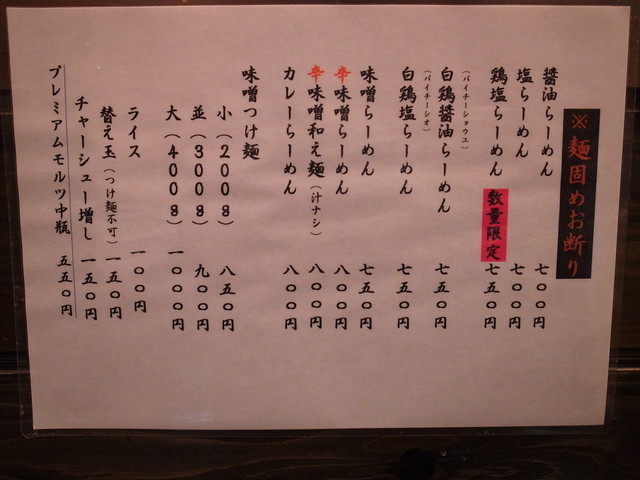 ※麺固めお断り
醤油らーめん 七〇〇円
塩らーめん 七〇〇円
鶏塩らーめん 数量限定 七五〇円
(パイチーショウユ)
白鶏醤油らーめん 七五〇円
(パイチーシオ)
白鶏塩らーめん 七五〇円
味噌らーめん 七五〇円
辛味噌らーめん 八〇〇円
辛味噌和え麺(汁ナシ) 八〇〇円
カレーらーめん 八〇〇円
味噌つけ麺
小(200g) 八五〇円
並(300g) 九〇〇円
大(400g) 一〇〇〇円
ライス 一〇〇円
替え玉(つけ麺不可) 一五〇円
チャーシュー増し 一五〇円
プレミアムモルツ中瓶 五五〇円